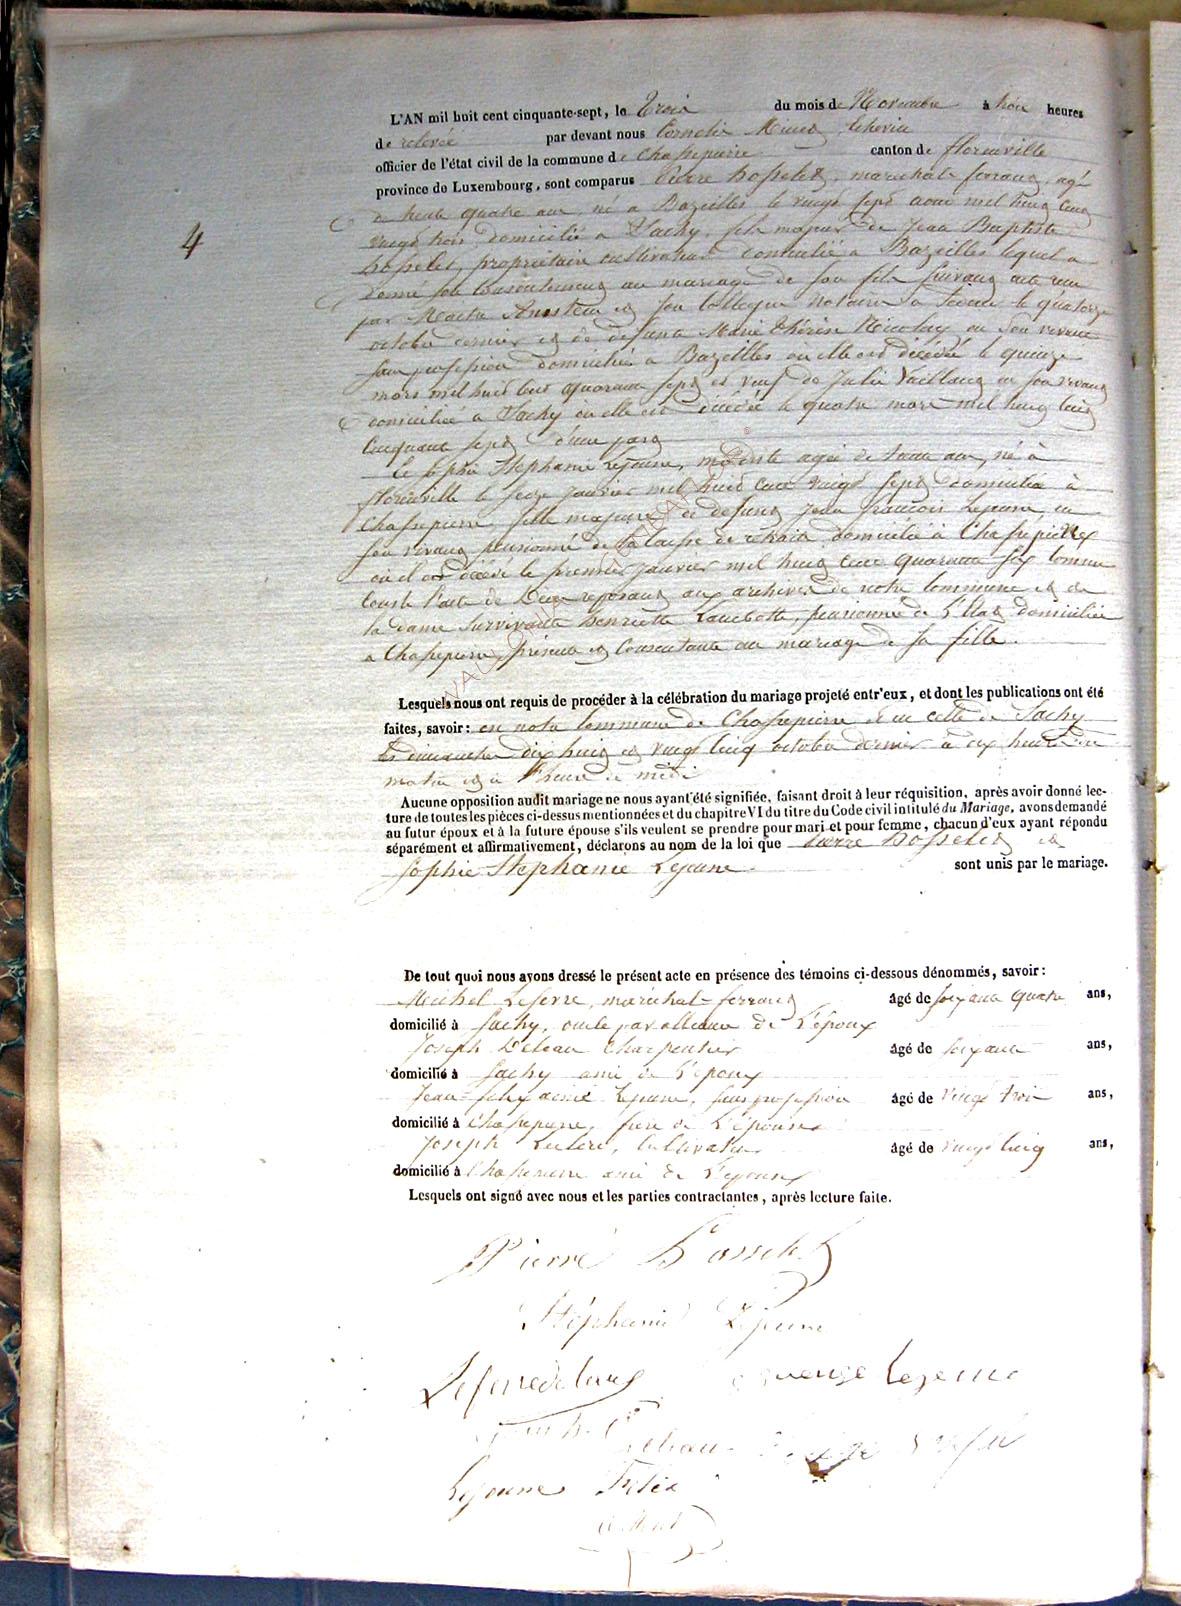 L'AN mil huit cent cinquante-sept, le Trois du mois de Novembre à trois heures
de relevée par devant nous Corneille
officier de l'état civil de la commune de Chassepierre canton de florenville
province de Luxembourg, sont comparus Pierre hosselet, maréchal ferrant, agé
de trente quatre ans, né a Bazeilles le vingt sept aout mil huit cent
4
vingt trois, domicilié a Sachy, fils majeur de Jean Baptiste
hosselet, propriétaire cultivateur domicilié a Bazeilles lequel a
donné son Consentement au mariage de son fils suivant acte reçu
par Maitre et son Collègue notaires a Sedan le quatorze
octobre dernier et de defunte Marie thérèse Nicolay en son vivant
sans profession domiciliée a Bazeilles où elle est décédée le quinze
mars mil huit cent quarante sept et veuf de Julie Vaillant en son vivant
domiciliée a Sachy où elle est décédée le quatre mars mil huit cent
Cinquante sept d'une part
Et Sophie Stephanie Lejeune, modiste agée de trente ans, né à
florenville le seize janvier mil huit cent vingt sept domiciliée à
Chassepierre, fille majeure de defunt Jean francois Lejeune en
son vivant pensionné de la caisse de retraite domicilié à Chassepierre
où il est décédé le premier janvier mil huit cent quarante six comme
conste l'acte de Décès reposant aux archives de notre Commune et de
la dame survivante henriette pensionnée de l'Etat domiciliée
a Chassepierre, présente et Consentante au mariage de sa fille.
Lesquels nous ont requis de procéder à la célébration du mariage projeté entr'eux, et dont les publications ont été
faites, savoir: en notre Commune de Chassepierre et en celle de Sachy
les dimanches dix huit et vingt cinq octobre dernier à dix heures du
matin et à l'heure de midi
Aucune opposition audit mariage ne nous ayant été signifiée, faisant droit à leur réquisition, après avoir donné lec-
ture de toutes les pièces ci-dessus mentionnées et du chapitre VI du titre du Code civil intitulé du Mariage, avons demandé
au futur époux et à la future épouse s'ils veulent se prendre pour mari et pour femme, chacun d'eux ayant répondu
séparément et affirmativement, déclarons au nom de la loi que Pierre hosselet et
Sophie Stephanie Lejeune sont unis par le mariage.
De tout quoi nous avons dressé le présent acte en présence des témoins ci-dessous dénommés, savoir:
Michel Lefevre, maréchal-ferrant agé de soixante quatre ans,
domicilié à Sachy, oncle par alliance de l'époux
Joseph Charpentier agé de soixante ans,
domicilié à Sachy ami de l'époux
Jean felix aimé Lejeune, sans profession agé de vingt trois ans,
domicilié à Chassepierre, frère de l'épouse
Joseph Leclere, Cultivateur agé de vingt cinq ans,
domicilié à Chassepierre ami de l'epoux
Lesquels ont signé avec nous et les parties contractantes, après lecture faite.
Pierre hosselet
Stéphanie Lejeune
Lejeune
Lejeune Félix